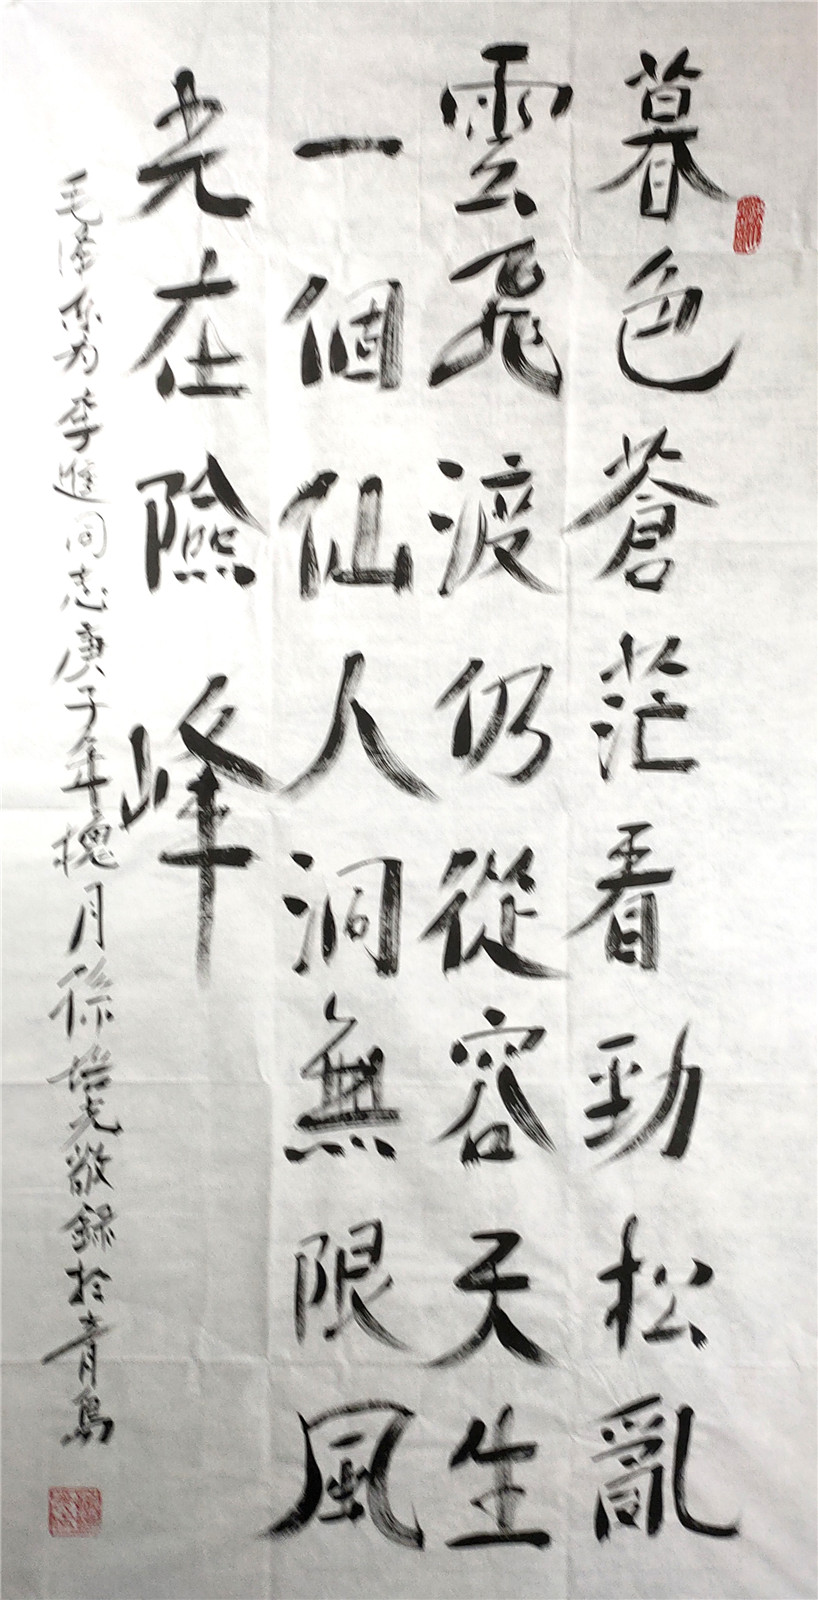 暮色蒼茫看勁松亂
雲飛渡仍從容天生
一個仙人洞無限風
光在險峰
毛泽东为李進同志庚子年槐月徐培光敬録於青島